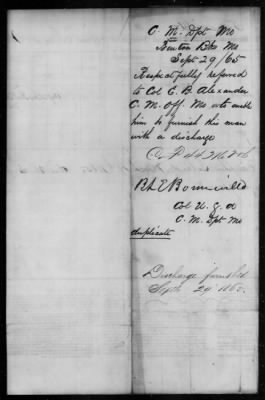 C. M. Dpt Mo
Benton Bks Mo
Sept 29/65
Respectfully refered
to Col E. B. Alexander
C. M. Off. Mo
him to furnish this man
with a discharge
Col U. S. A
C. M. Dpt Mo
duplicate
Discharge furnished
Sept. 29. 1865.